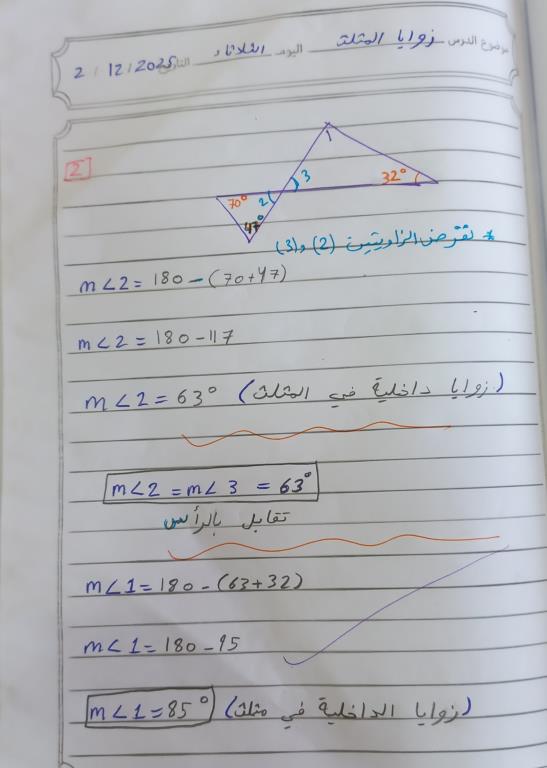 موضوع الدرس زوايا المثلث اليوم الثلاثاء التاريخ 2025 / 12 / 2
2
1
3
32°
70°
2
47°
* نفرض الزاويتين (2) و (3)
m<2 = 180 - (70+47)
m<2 = 180 - 117
m<2 = 63° (زوايا داخلية في المثلث)
m<2 = m<3 = 63°
تقابل بالرأس
m<1 = 180 - (63+32)
m<1 = 180 - 95
m<1 = 85° (زوايا الداخلية في مثلث)